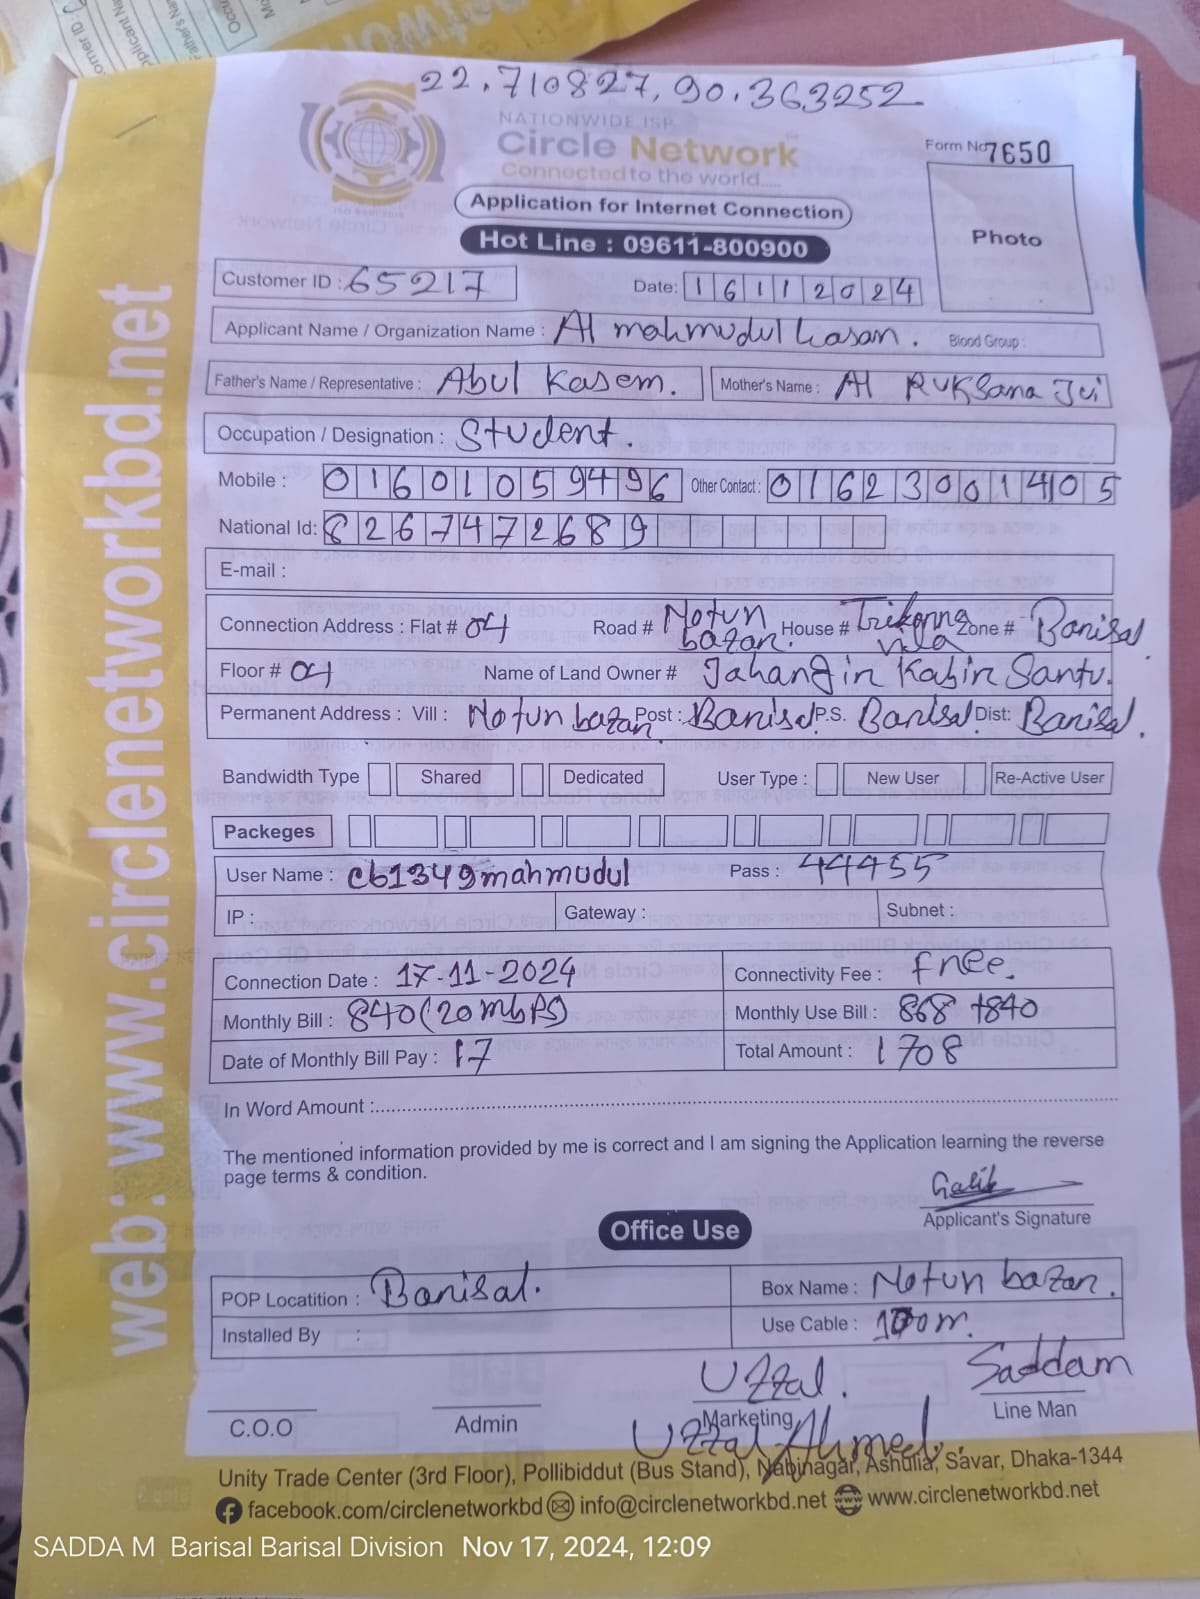 22.710827, 90.363252
NATIONWIDE ISP
Circle Network
Connected to the world.....
Form No 7650
Application for Internet Connection
Hot Line : 09611-800900
Photo
Customer ID : 65217
Date: 16112024
Applicant Name / Organization Name : Al mahmudul hasan. Blood Group :
Father's Name / Representative : Abul Kasem. Mother's Name : Al Ruksana
Occupation / Designation : Student.
Mobile : 01601059496 Other Contact : 01623001405
National Id: 8267472689
E-mail :
Connection Address : Flat # 04 Road # Notun bazar. House # Trikonna villa Zone # Barisal.
Floor # 04 Name of Land Owner # Jahangir Kabir Santu.
Permanent Address : Vill : Notun bazar Post : Barisal. P.S. Barisal Dist: Barisal.
Bandwidth Type Shared Dedicated User Type : New User Re-Active User
Packeges
User Name : cb1349mahmudul Pass : 44455
IP : Gateway : Subnet :
Connection Date : 17-11-2024 Connectivity Fee : free.
Monthly Bill : 840 (20mbps) Monthly Use Bill : 868 +840
Date of Monthly Bill Pay : 17 Total Amount : 1708
In Word Amount :
The mentioned information provided by me is correct and I am signing the Application learning the reverse
page terms & condition.
Galib
Applicant's Signature
Office Use
POP Locatition : Barisal. Box Name : Notun bazar.
Installed By : Use Cable : 100m.
Uzzal. Saddam
C.O.O Admin Marketing Line Man
Uzzal Ahmed
Unity Trade Center (3rd Floor), Pollibiddut (Bus Stand), Nabinagar, Ashulia, Savar, Dhaka-1344
facebook.com/circlenetworkbd info@circlenetworkbd.net www.circlenetworkbd.net
web: www.circlenetworkbd.net
SADDA M Barisal Barisal Division Nov 17, 2024, 12:09